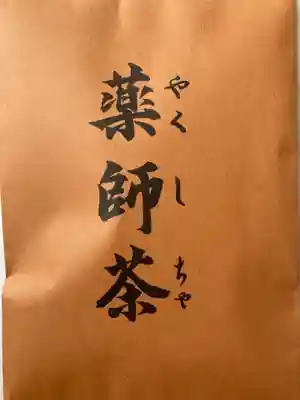 薬師茶
やくしちゃ